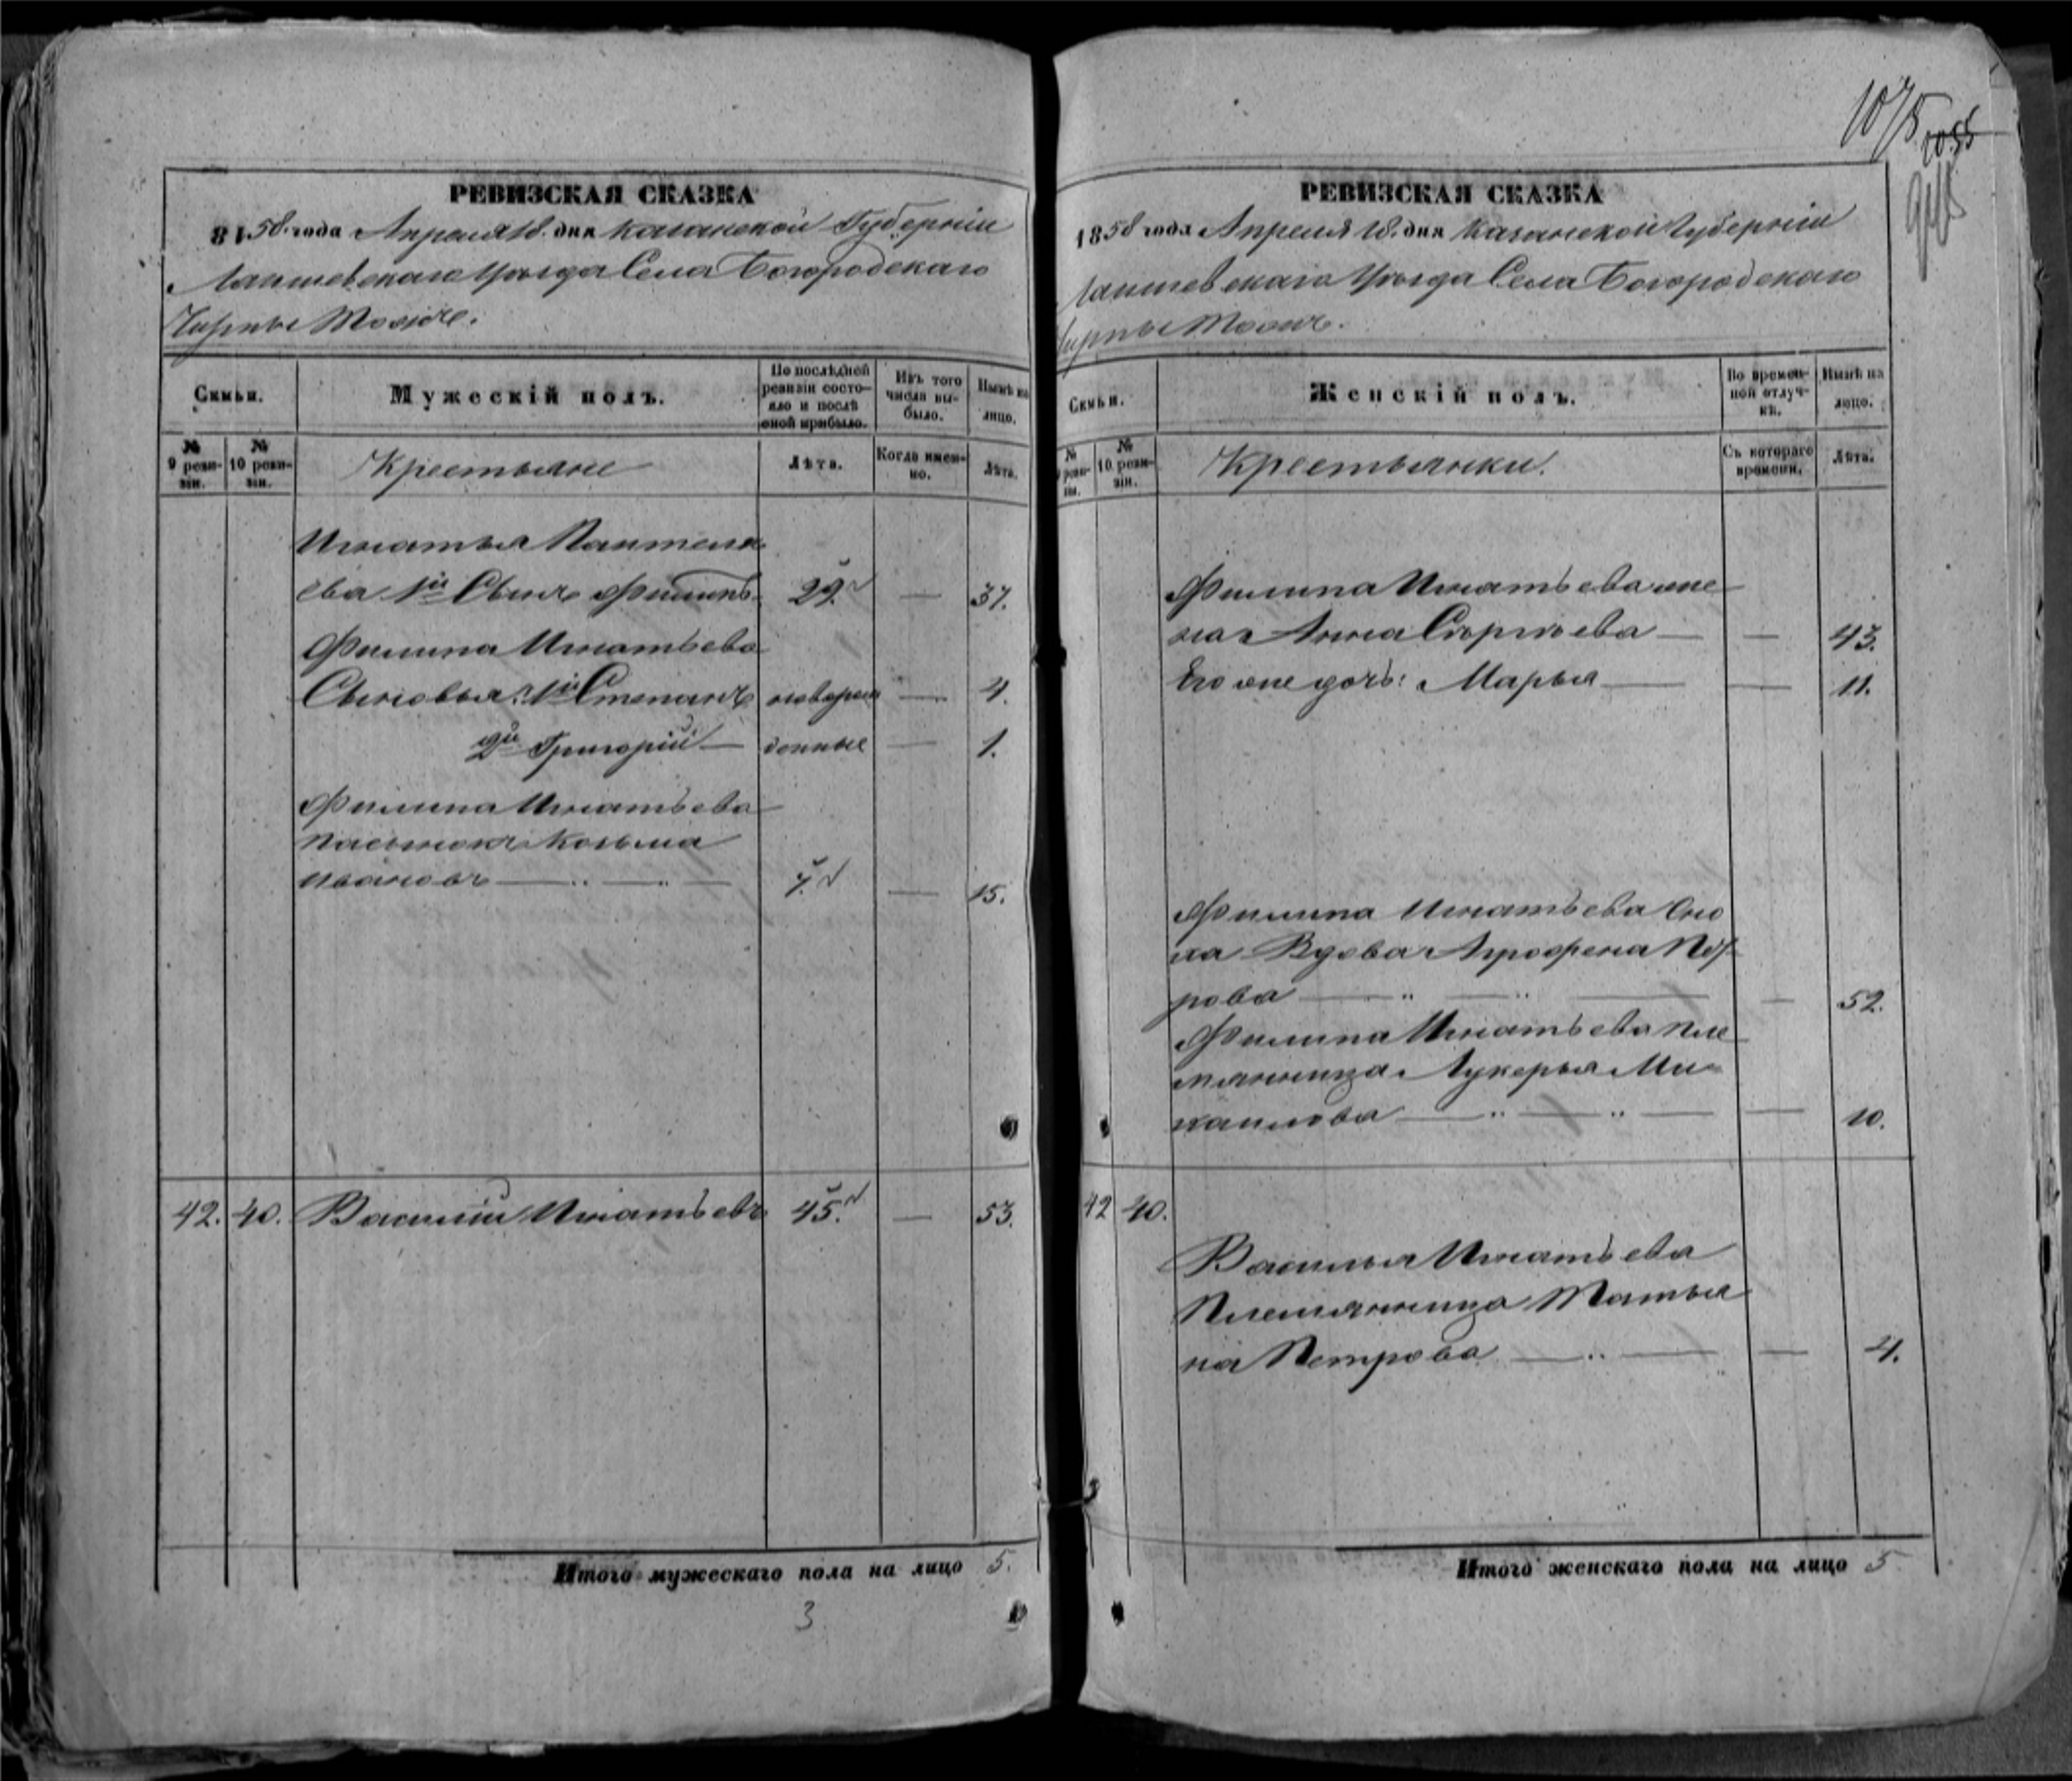 РЕВИЗСКАЯ СКАЗКА
1858 года Апреля 18 дня Казанской Губерніи
Лаишевскаго Уѣзда Села Богородскаго
Чирпы тожъ.
Семьи.
Мужескій полъ.
По послѣдней ревизіи состояло и послѣ оной прибыло.
Изъ того числа выбыло.
Нынѣ на лицо.
№ 9 ревизіи.
№ 10 ревизіи.
Крестьяне
Лѣта.
Когда именно.
Лѣта.
Игнатья Пантеле
ева 1й Сынъ Филипъ 29. — 37.
Филипа Игнатьева
Сыновья: 1й Степанъ новорож — 4.
2й Григорій — денные — 1.
Филипа Игнатьева
пасынокъ Козьма
Ивановъ — 7. — 15.
42. 40. Василій Игнатьевъ 45. — 53.
Итого мужескаго пола на лицо 5.
3
1075
1055
РЕВИЗСКАЯ СКАЗКА
1858 года Апреля 18. дня Казанской Губерніи
Лаишевскаго Уѣзда Села Богородскаго
Чирпы тожъ.
Семьи.
Женскій полъ.
Во временной отлучкѣ.
Нынѣ на лицо.
№ 9 ревизіи.
№ 10 ревизіи.
Крестьянки.
Съ котораго времени.
Лѣта.
Филипа Игнатьева же
на Анна Сергѣева — — 43.
Его же дочь: Марья — — 11.
Филипа Игнатьева Сно
ха Вдова Агрофена
рова — — 52.
Филипа Игнатьева пле
мянница Лукерья Ми
хаилова — — 10.
42 40.
Василья Игнатьева
Племянница Татья
на Петрова — — 4.
Итого женскаго пола на лицо 5